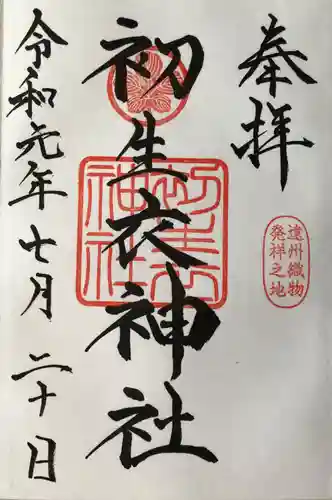 奉拝
遠州織物
発祥之地
初生衣神社
令和元年七月二十日